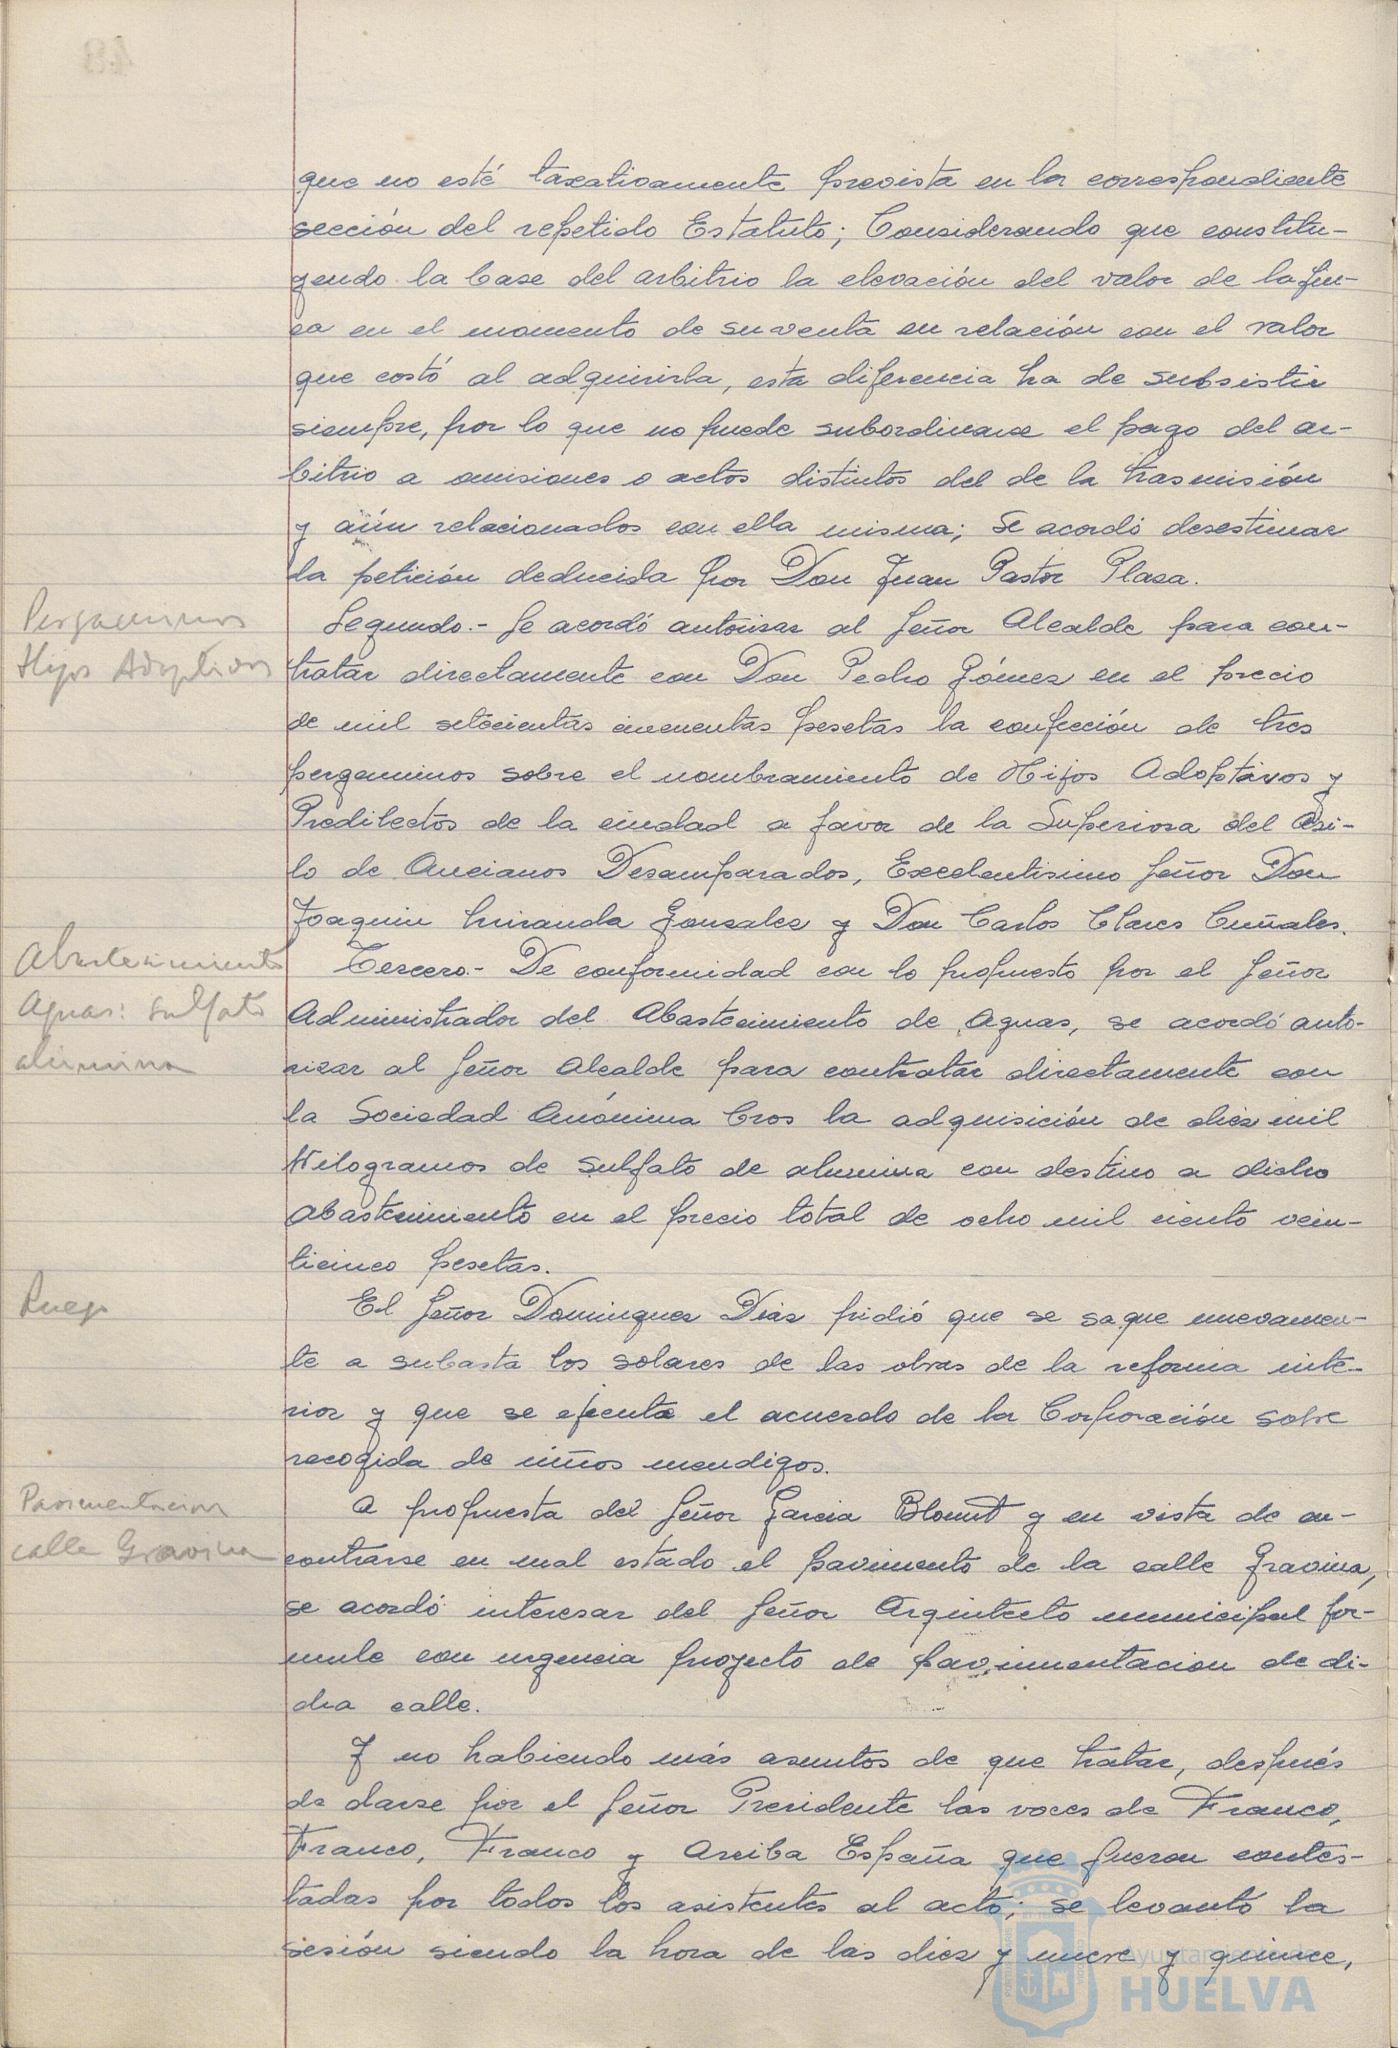 que no esté taxativamente prevista en la correspondiente
sección del repetido Estatuto; Considerando que constitu-
yendo la base del arbitrio la elevación del valor de la fin-
ca en el momento de su venta en relación con el valor
que costó al adquirirla, esta diferencia ha de subsistir
siempre, por lo que no puede subordinarse el pago del ar-
bitrio a omisiones o actos distintos del de la trasmisión
y aún relacionados con ella misma; Se acordó desestimar
la petición deducida por Don Juan Pastor Plaza.
Pergaminos
Hijos Adoptivos
Segundo.- Se acordó autorizar al Señor Alcalde para con-
tratar directamente con Don Pedro Gómez en el precio
de mil setecientas cincuentas pesetas la confección de tres
pergaminos sobre el nombramiento de Hijos Adoptivos y
Predilectos de la ciudad a favor de la Superiora del Asi-
lo de Ancianos Desamparados, Excelentísimo Señor Don
Joaquin Miranda Gonzalez y Don Carlos Clares Cuñales.
Abastecimiento
Aguas: sulfato
alumina
Tercero.- De conformidad con lo propuesto por el Señor
Administrador del Abastecimiento de Aguas, se acordó auto-
rizar al Señor Alcalde para contratar directamente con
la Sociedad Anónima Cros la adquisición de diez mil
Kilogramos de sulfato de alumina con destino a dicho
abastecimiento en el precio total de ocho mil ciento vein-
ticinco pesetas.
Ruego
El Señor Dominguez Diaz pidió que se saque nuevamen-
te a subasta los solares de las obras de la reforma inte-
rior y que se ejecute el acuerdo de la Corporación sobre
recogida de niños mendigos.
Pavimentacion
calle Gravina
A propuesta del Señor Garcia Blount y en vista de en-
contrarse en mal estado el pavimento de la calle Gravina,
se acordó interesar del Señor Arquitecto municipal for-
mule con urgencia proyecto de pavimentacion de di-
cha calle.
Y no habiendo más asuntos de que tratar, después
de darse por el Señor Presidente las voces de Franco,
Franco, Franco y Arriba España que fueron contes-
tadas por todos los asistentes al acto; se levantó la
sesión siendo la hora de las diez y nueve y quince,
Ayuntamiento de
HUELVA